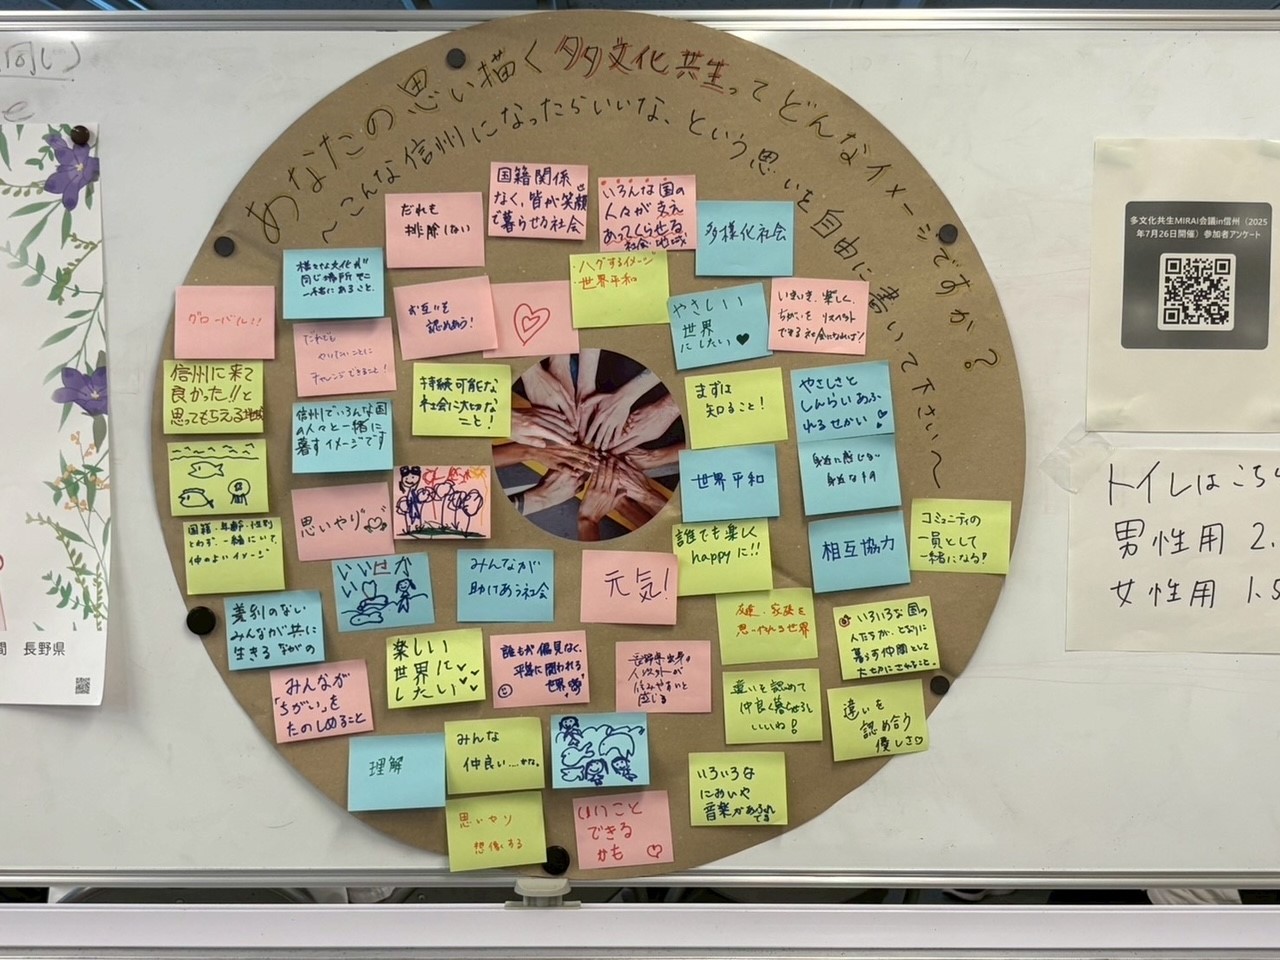 あなたの思い描く多文化共生ってどんなイメージですか？
〜こんな信州になったらいいな、という思いを自由に書いて下さい〜
だれも
排除しない
国籍関係
なく、皆が笑顔
で暮らせる社会
いろんな国の
人々が支え
あってくらせる
社会・地域
多様化社会
様々な文化が
同じ場所で
一緒にあること。
お互いを
認めあう！
・ハグするイメージ
・世界平和
やさしい
世界
にしたい
いきいき、楽しく、
ちがいをリスペクト
できる社会になればいい
グローバル!!
だれでも
やりたいことに
チャレンジできること！
信州に来て
良かった!!と
思ってもらえる地域
信州でいろんな国
の人々と一緒に
暮すイメージです
持続可能な
社会に大切な
こと！
まずは
知ること！
やさしさと
しんらいあふ
れるせかい
世界平和
身近に感じない
身近な
思いやり
国籍・年齢・性別
とわず、一緒にいて、
仲のよいイメージ
誰でも楽しく
happyに!!
相互協力
コミュニティの
一員として
一緒になる！
いいせかい
みんなが
助けあう社会
元気！
差別のない
みんなが共に
生きるながの
友達、家族を
思いやれる世界
いろいろな国の
人たちが、となりに
暮らす仲間として
大切にされること。
楽しい
世界に
したい
誰もが偏見なく、
平等に関われる
世界
長野県出身の
人以外が
住みやすいと
感じる
みんなが
「ちがい」を
たのしめること
違いを認めて
仲良く暮らせると
いいね！
違いを
認め合う
優しさ
理解
みんな
仲良い……かな。
いろいろな
においや
音楽があふれ
てる
思いやり
想像する
いいこと
できる
かも
多文化共生MIRAI会議in信州（2025
年7月26日開催）参加者アンケート
トイレはこちら
男性用 2.
女性用 1.5
(同じ)
長野県